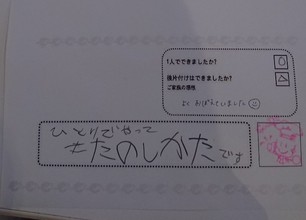 1人でできましたか?
○
後片付けはできましたか?
△
ご家族の感想
よく おぼえていました☺
ひとりでやって
たのしかたです